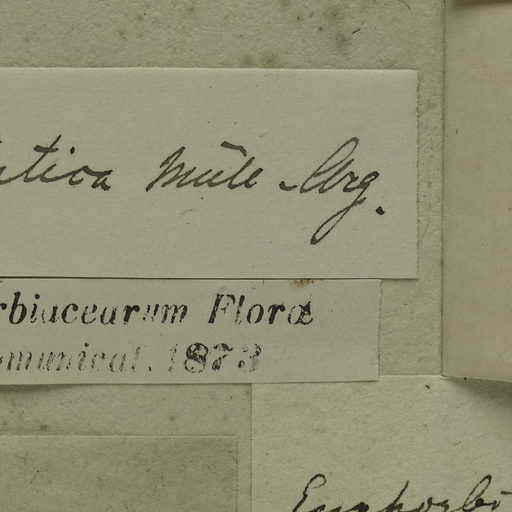 tica Müll-Arg.
rbiacearum Floræ
omunicat. 1873
Euphorbi